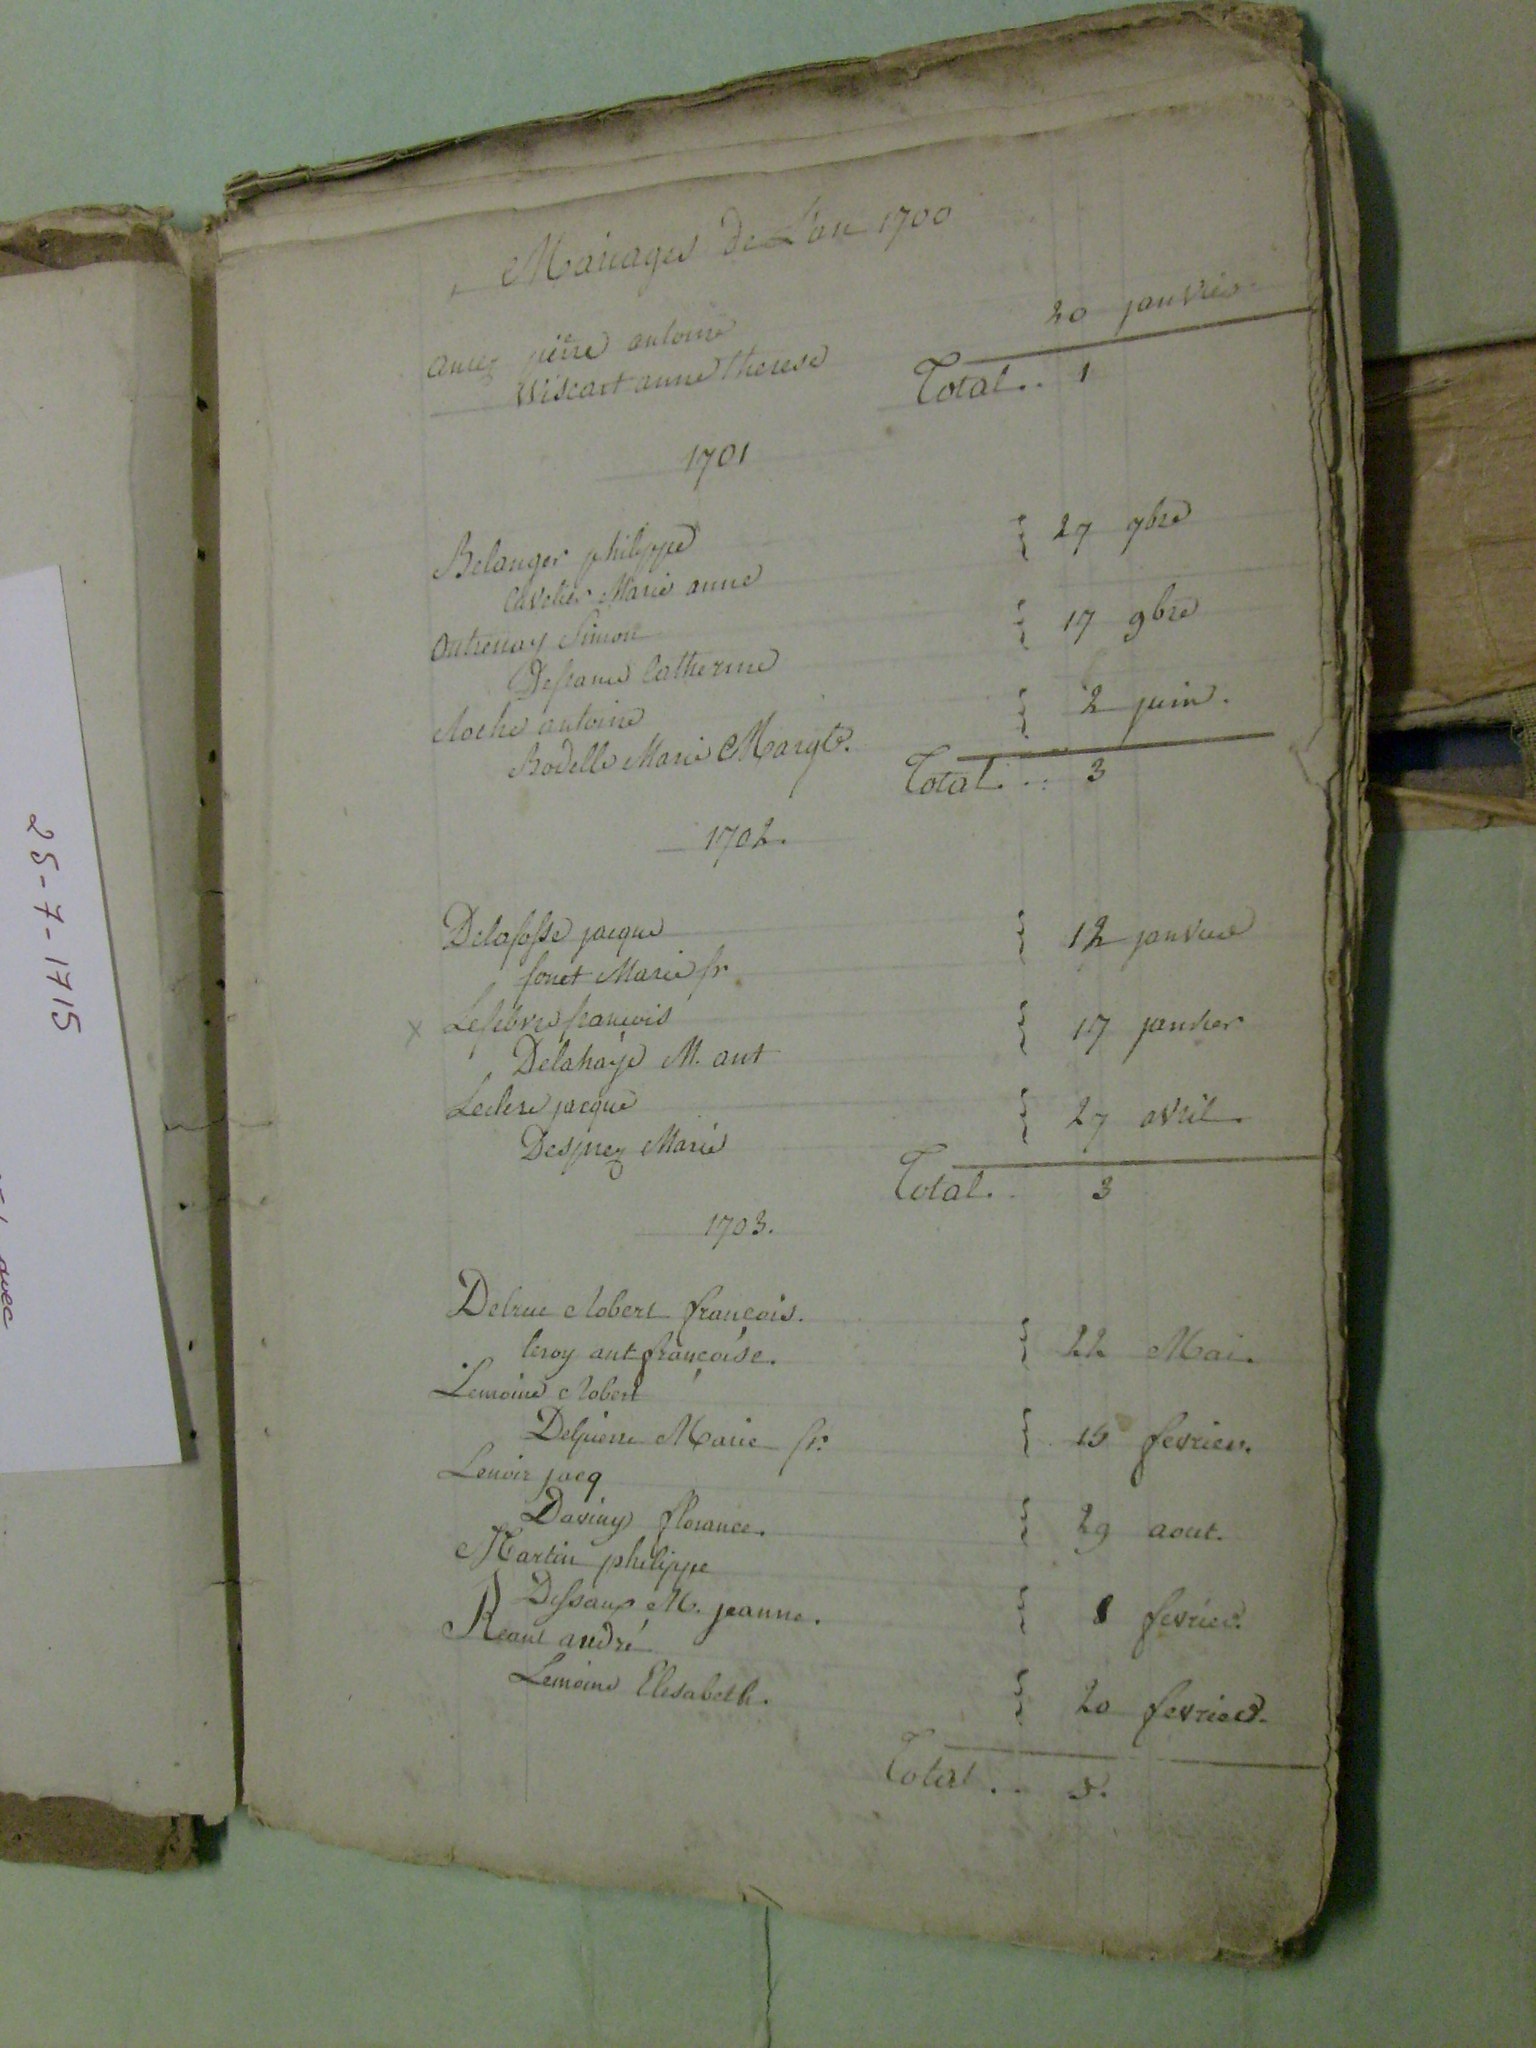 Mariages de L'an 1700
Ancq pierre antoine
Wiscart anne therese
20 janvier
Total.. 1
1701
Belanger philippe
Cavelier Marie anne
27 7bre
Outrenay Simon
Dessaux Catherine
17 9bre
Roche antoine
Bodelle Marie Margte.
2 juin.
Total... 3
1702.
Delafosse jacque
fouet Marie fr
12 janvier
x Lefebvre francois
Delahaye M. ant
17 janvier
Leclerc jacque
Desprez Marie
27 avril
Total. 3
1703.
Delrue Robert françois.
leroy ant françoise.
22 Mai.
Lemoine Robert
Delpierre Marie fr.
15 fevrier.
Lenoir jacq
Daviny florance.
29 aout.
Martin philippe
Dessaux M. jeanne.
8 fevrier.
Reant andré
Lemoine Elisabeth.
20 fevrier.
Total.. 5.
25-7-1715
avec